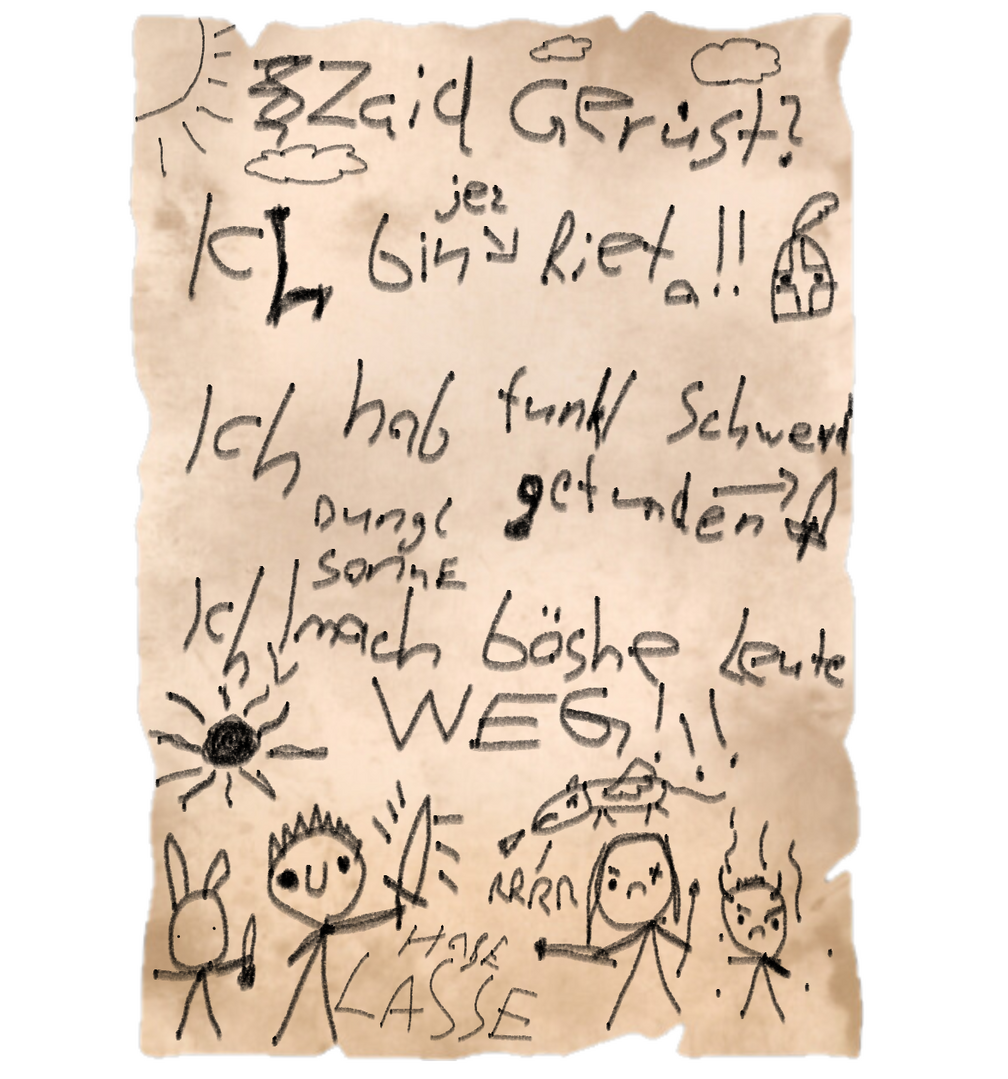 Zaid Gerüst?
jez
Ich bin Rieta!!
Ich hab funkl Schwerd
gefunden
Dungl
SonnE
Ich mach böshe Leute
WEG!!!
RRRR
HabE
LASSE